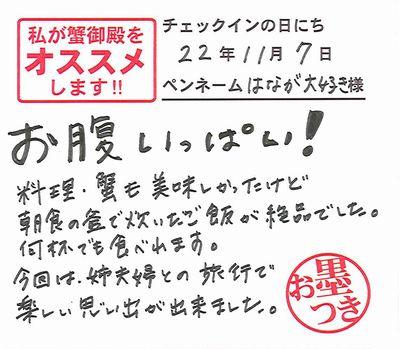 私が蟹御殿を
オススメ
します!!
チェックインの日にち
22年11月7日
ペンネーム はなが大好き様
お腹いっぱい!
料理・蟹も美味しかったけど
朝食の釜で炊いたご飯が絶品でした。
何杯でも食べれます。
今回は、姉夫婦との旅行で
楽しい思い出が出来ました。
お墨つき